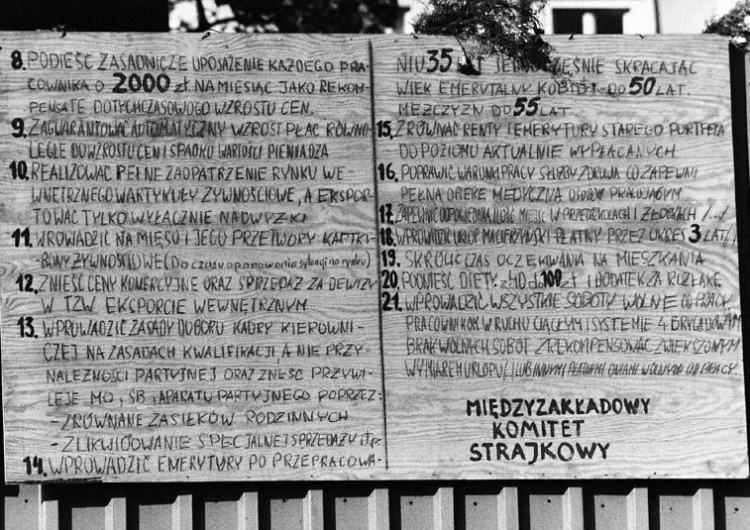 8. PODIEŚĆ ZASADNICZE UPOSAŻENIE KAŻDEGO PRA-
COWNIKA O 2000 zł NA MIESIĄC JAKO REKOM-
PENSATĘ DOTYCHCZASOWEGO WZROSTU CEN.
9. ZAGWARANTOWAĆ AUTOMATYCZNY WZROST PŁAC RÓWNO-
LEGLE DO WZROSTU CEN I SPADKU WARTOŚCI PIENIĄDZA
10. REALIZOWAĆ PEŁNE ZAOPATRZENIE RYNKU WE-
WNĘTRZNEGO W ARTYKUŁY ŻYWNOŚCIOWE, A EKSPOR-
TOWAĆ TYLKO WYŁĄCZNIE NADWYŻKI
11. WROWADZIĆ NA MIĘSO I JEGO PRZETWORY KARTKI-
BONY ŻYWNOŚCIOWE (Do czasu opanowania sytuacji na rynku)
12. ZNIEŚĆ CENY KOMERCYJNE ORAZ SPRZEDAŻ ZA DEWIZY
W TZW. EKSPORCIE WEWNĘTRZNYM
13. WPROWADZIĆ ZASADY DOBORU KADRY KIEROWNI-
CZEJ NA ZASADACH KWALIFIKACJI, A NIE PRZY-
NALEŻNOŚCI PARTYJNEJ ORAZ ZNIEŚĆ PRZYWI-
LEJE MO, SB I APARATU PARTYJNEGO POPRZEZ-
- ZRÓWNANE ZASIŁKÓW RODZINNYCH
- ZLIKWIDOWANIE SPECJALNEJ SPRZEDAŻY itp
14. WPROWADZIĆ EMERYTURY PO PRZEPRACOWA-
NIU 35 LAT JEDNOCZEŚNIE SKRACAJĄC
WIEK EMERYTALNY KOBIET DO 50 LAT.
MĘŻCZYZN DO 55 LAT
15. ZRÓWNAĆ RENTY I EMERYTURY STAREGO PORTFELA
DO POZIOMU AKTUALNIE WYPŁACANYCH
16. POPRAWIĆ WARUNKI PRACY SŁUŻBY ZDROWIA CO ZAPEWNI
PEŁNĄ OPIEKĘ MEDYCZNĄ OSOBOM PRACUJĄCYM
17. ZAPEWNIĆ ODPOWIEDNIĄ ILOŚĆ MIEJSC W PRZEDSZKOLACH I ŻŁOBKACH /.../
18. WPROWADZIĆ URLOP MACIERZYŃSKI PŁATNY PRZEZ OKRES 3 LAT /../
19. SKRÓCIĆ CZAS OCZEKIWANIA NA MIESZKANIA
20. PODNIEŚĆ DIETY z 40 do 100 zł I DODATEK ZA ROZŁĄKĘ.
21. WPROWADZIĆ WSZYSTKIE SOBOTY WOLNE OD PRACY
PRACOWNIKOM W RUCHU CIĄGŁYM I SYSTEMIE 4 BRYGADOWYM
BRAK WOLNYCH SOBÓT ZREKOMPENSOWAĆ ZWIĘKSZONYM
WYMIAREM URLOPU /LUB INNYMI PŁATNYMI DNIAMI WOLNYMI OD PRACY
MIĘDZYZAKŁADOWY
KOMITET
STRAJKOWY